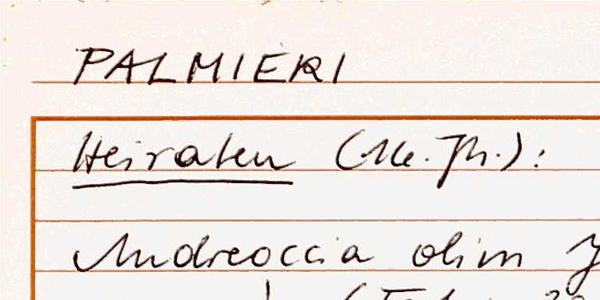 PALMIERI
Heiraten (Ue. Th.):
Andreoccia olim